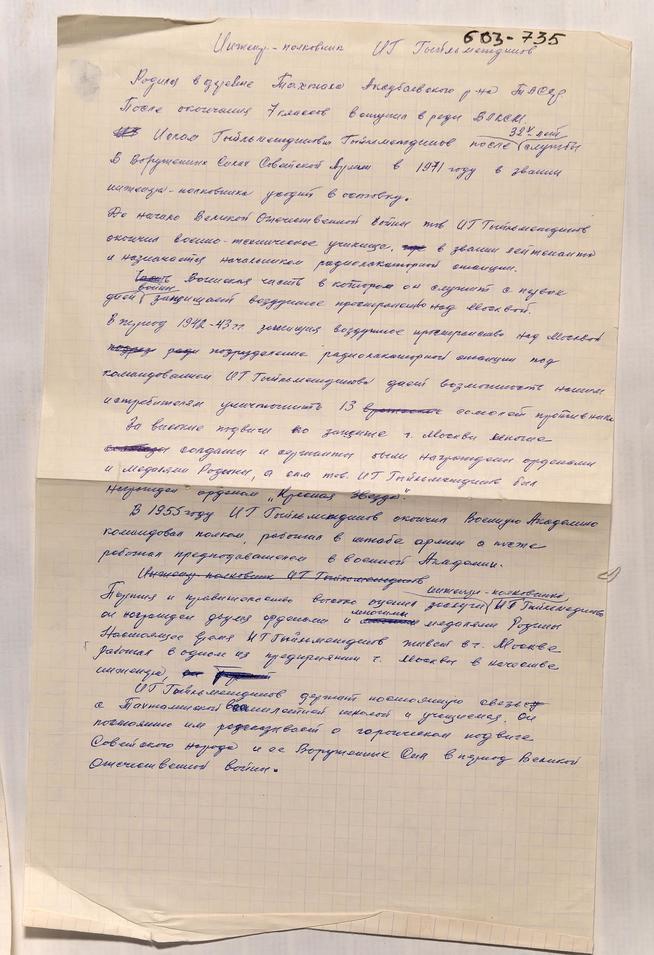 603-735
Инженер-полковник ИГ Гыйльметдинов
Родился в деревне Тахтала Акдбаевского р-на ТАССР.
После окончания 7 классов вступил в ряды ВЛКСМ.
Гыйльметдинович Гыйльметдинов после 32х лет службы
В Вооруженных Силах Советской Армии в 1971 году в звании
инженера-полковника уходит в отставку.
До начала Великой Отечественной войны тов ИГ Гыйльметдинов
окончил военно-техническое училище, в звании лейтенанта
и назначается начальником радиолокаторной станции.
Часть Воинская часть в котором он служит с первых
дней войны защищает воздушное пространство над Москвой.
В период 1942-43 гг защищая воздушное пространство над Москвой
подразделение радиолокаторной станции под
командованием ИГ Гыйльметдинова дает возможность нашим
истребителям уничтожить 13 самолей противника
За высокие подвиги по защите г. Москвы многие
солдаты и сержанты были награждены орденами
и медалями Родины, а сам тов. ИГ Гыйльметдинов был
награжден орденом „Красная Звезда".
В 1955 году ИГ Гыйльметдинов окончил Военную Академию
командовал полком, работал в штабе армии а также
работал преподавателем в военной Академии.
Инженер-полковник ИГ Гыйльметдинов
Партия и правительство высоко оценила заслуги инженера-полковника ИГ Гыйльметдинова
он награжден двумя орденами и многими медалями Родины
Настоящее время ИГ Гыйльметдинов живет в г. Москве
работал в одном из предприятий г. Москвы в качестве
инженера,
ИГ Гыйльметдинов держит постоянную связь
с Тахталинской восьмилетней школой и учащимся. Он
постоянно им рассказывает о героическом подвиге
Советского народа и ее Вооруженных Сил в период Великой
Отечественной войны.